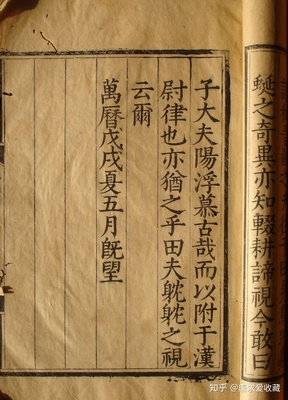 蜒之奇異亦知輟耕諦視今敢曰
子大夫陽浮慕古哉而以附于漢
尉律也亦猶之乎田夫躭躭之視
云爾
萬曆戊戌夏五月旣望
知乎